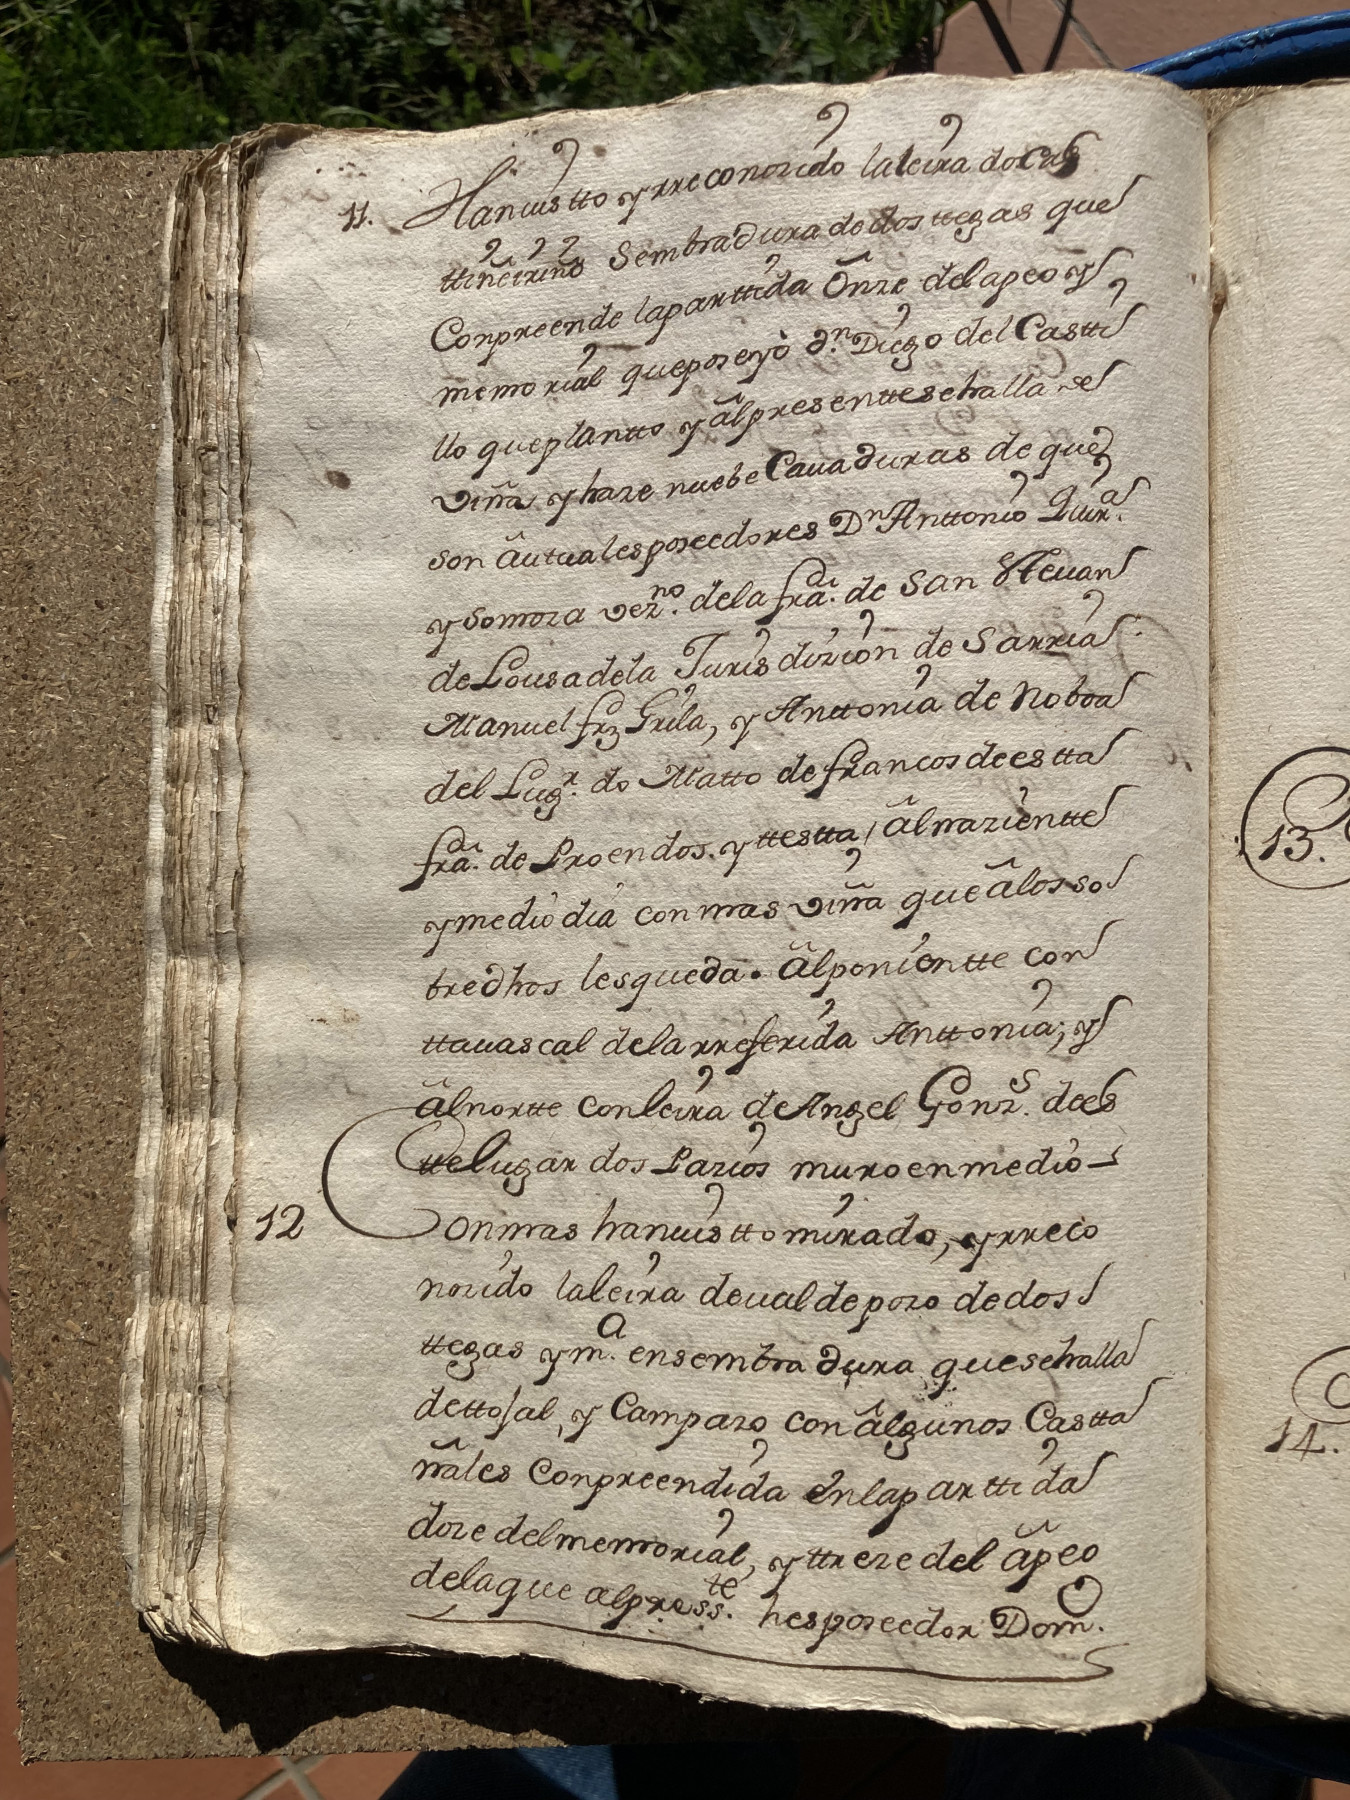 11. Han uistto y rreconozido la leira do cas
ttiñeiriño Sembradura de dos ttegas que
Conpreende la parttida Onze del apeo y
memorial que poseyò Dn. Diego del Castti
llo que plantto y âl presentte se halla de
viña y haze nuebe Cauaduras de que
son âutuales poseedores Dn Anttonio Quira.
y Somoza vezno. de la fra. de San Steuan
de Lousadela Jurisdizion de Sarria
Manuel frz Grila, y Anttonia de Noboa
del Lugr. do Matto de francos de estta
fra. de Proendos. y ttestta / âl nazientte
y medio dia con mas viña que â los so
bredhos les queda. âl ponientte con
ttauascal de la rreferida Anttonia; y
âl nortte con leira de Angel Gonzs. de es
tte lugar dos Pazios muro en medio
12 Con mas han uistto mirado, y rreco
nozido la leira de ual de pozo de dos
ttegas y ma. en sembradura que se halla
de ttojal, y Campazo con âlgunos Castta
ñales Conpreendida en la parttida
doze del memorial, y ttreze del âpeo
de la que al presste. hes poseedor Domo.
13.
14.